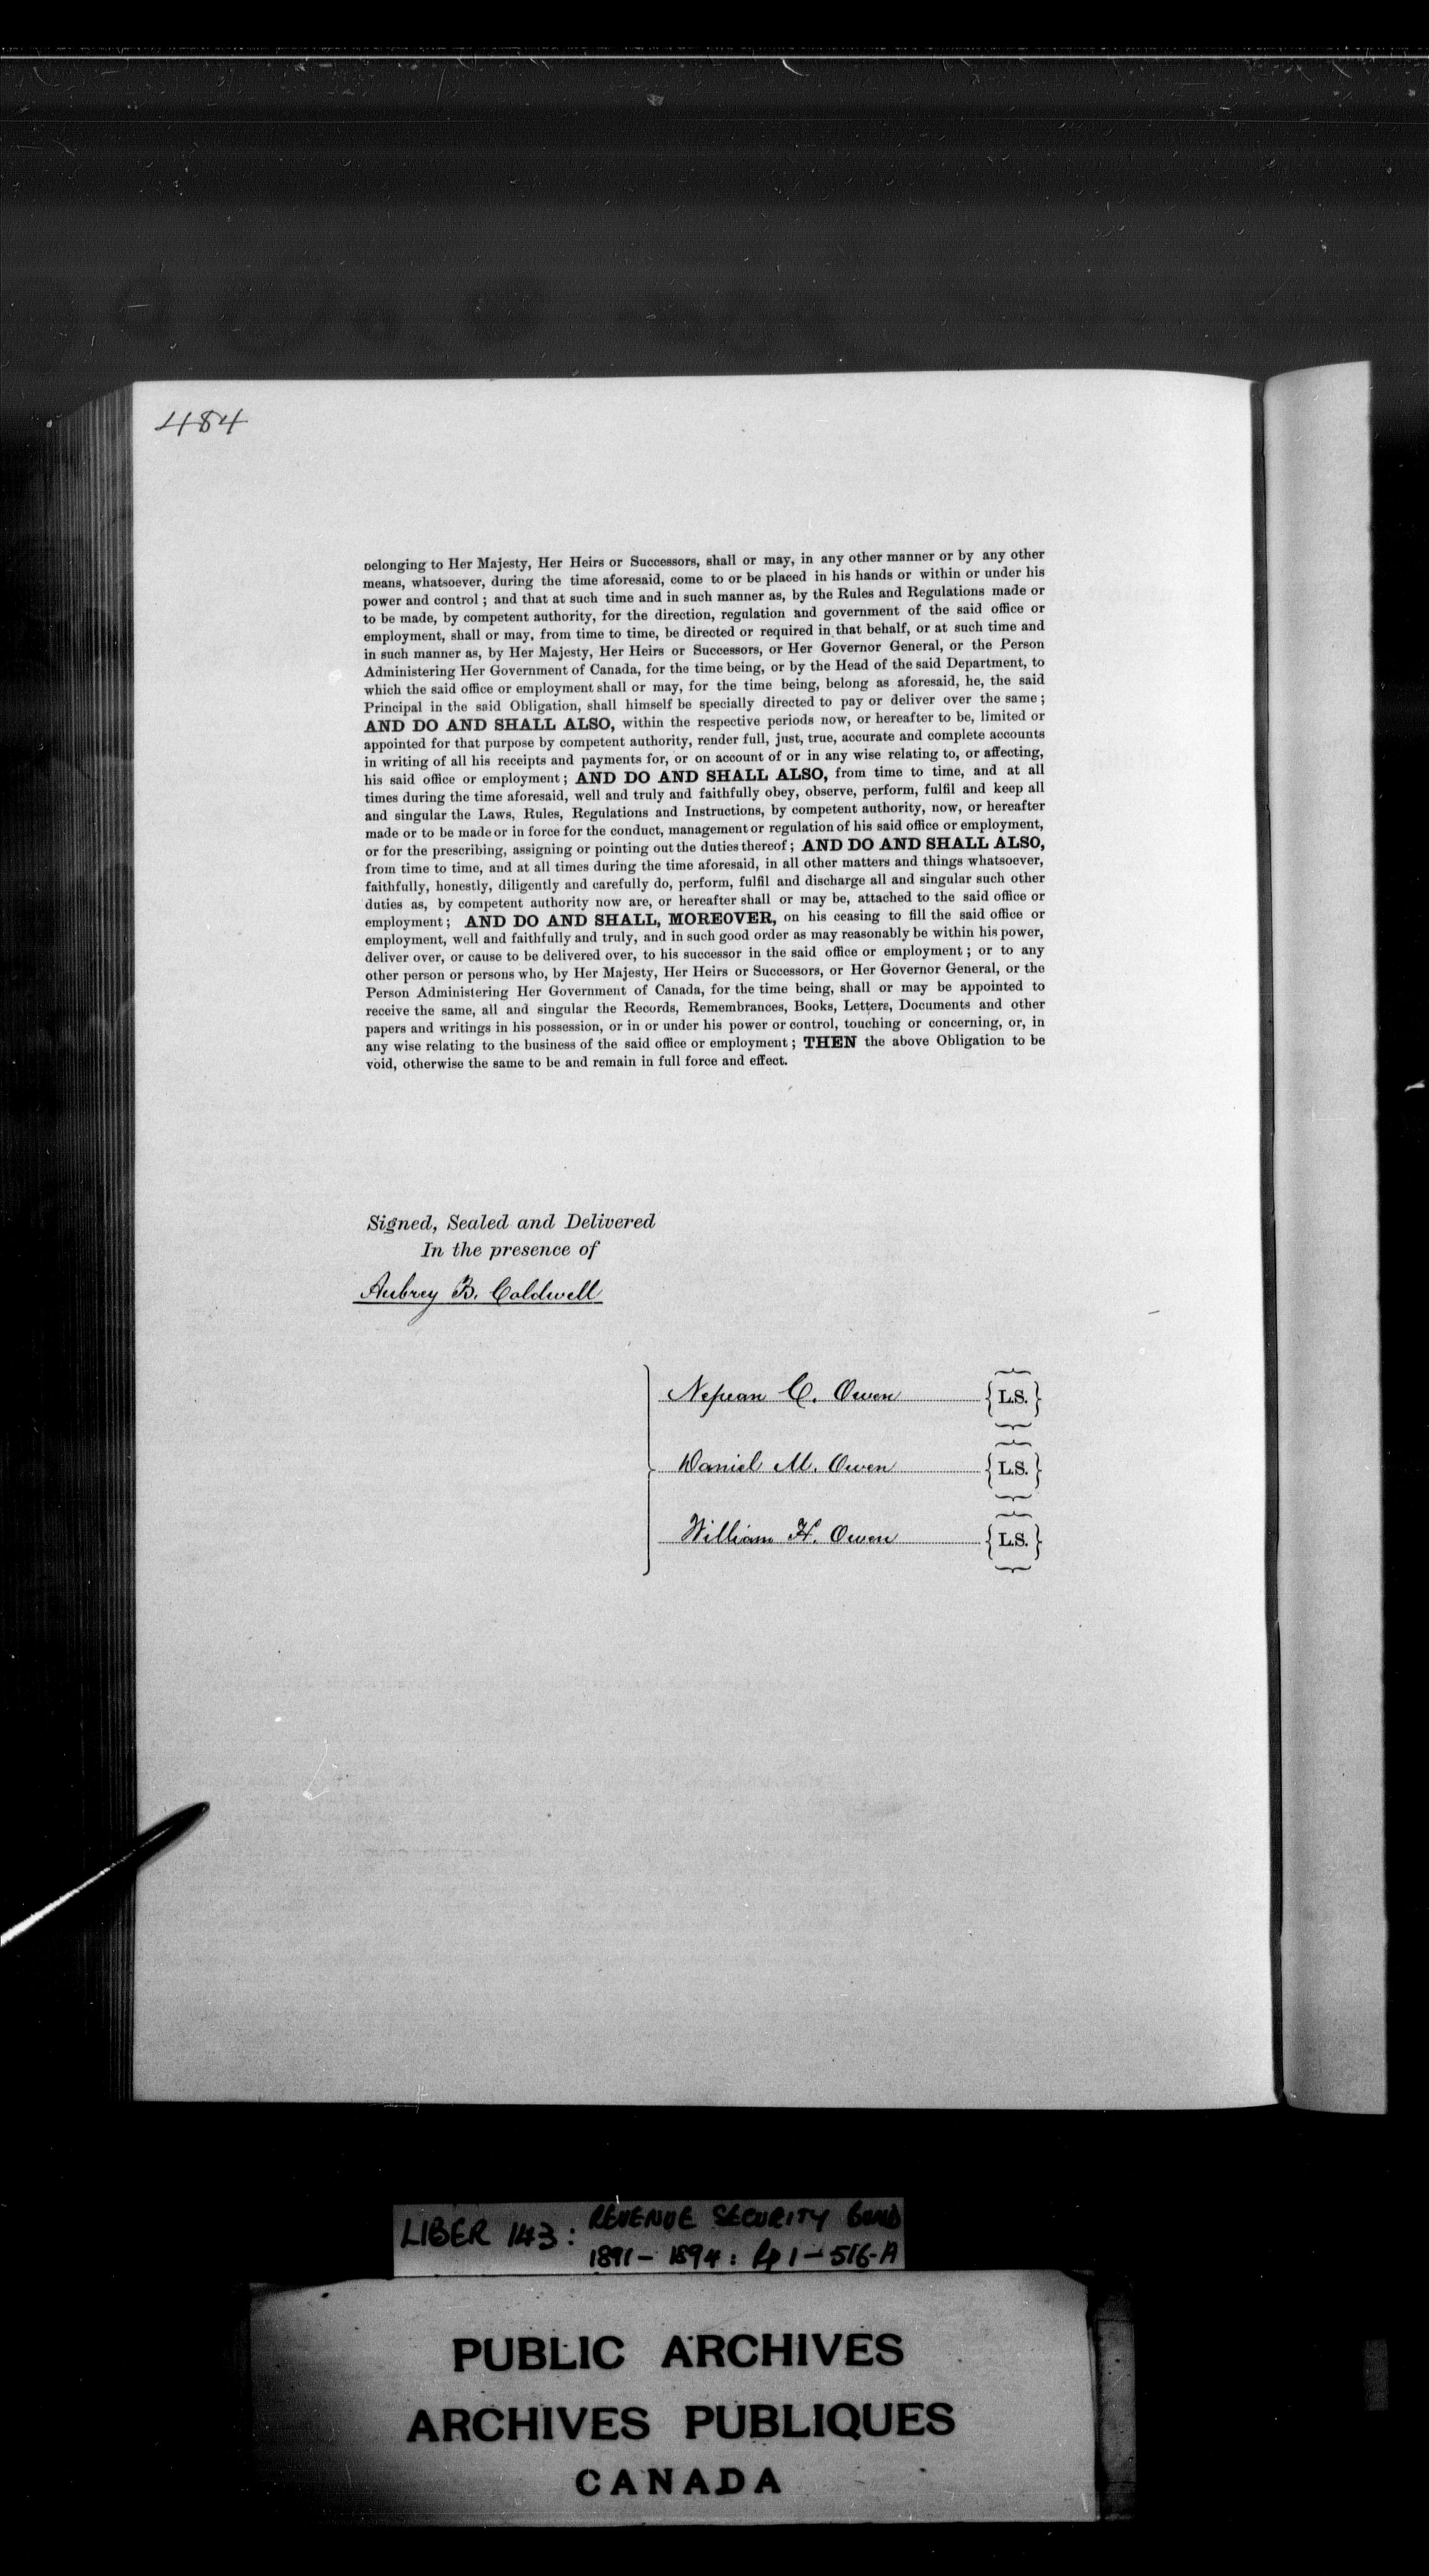 484
belonging to Her Majesty, Her Heirs or Successors, shall or may, in any other manner or by any other
means, whatsoever, during the time aforesaid, come to or be placed in his hands or within or under his
power and control ; and that at such time and in such manner as, by the Rules and Regulations made or
to be made, by competent authority, for the direction, regulation and government of the said office or
employment, shall or may, from time to time, be directed or required in that behalf, or at such time and
in such manner as, by Her Majesty, Her Heirs or Successors, or Her Governor General, or the Person
Administering Her Government of Canada, for the time being, or by the Head of the said Department, to
which the said office or employment shall or may, for the time being, belong as aforesaid, he, the said
Principal in the said Obligation, shall himself be specially directed to pay or deliver over the same ;
AND DO AND SHALL ALSO, within the respective periods now, or hereafter to be, limited or
appointed for that purpose by competent authority, render full, just, true, accurate and complete accounts
in writing of all his receipts and payments for, or on account of or in any wise relating to, or affecting,
his said office or employment ; AND DO AND SHALL ALSO, from time to time, and at all
times during the time aforesaid, well and truly and faithfully obey, observe, perform, fulfil and keep all
and singular the Laws, Rules, Regulations and Instructions, by competent authority, now, or hereafter
made or to be made or in force for the conduct, management or regulation of his said office or employment,
or for the prescribing, assigning or pointing out the duties thereof ; AND DO AND SHALL ALSO,
from time to time, and at all times during the time aforesaid, in all other matters and things whatsoever,
faithfully, honestly, diligently and carefully do, perform, fulfil and discharge all and singular such other
duties as, by competent authority now are, or hereafter shall or may be, attached to the said office or
employment ; AND DO AND SHALL, MOREOVER, on his ceasing to fill the said office or
employment, well and faithfully and truly, and in such good order as may reasonably be within his power,
deliver over, or cause to be delivered over, to his successor in the said office or employment ; or to any
other person or persons who, by Her Majesty, Her Heirs or Successors, or Her Governor General, or the
Person Administering Her Government of Canada, for the time being, shall or may be appointed to
receive the same, all and singular the Records, Remembrances, Books, Letters, Documents and other
papers and writings in his possession, or in or under his power or control, touching or concerning, or, in
any wise relating to the business of the said office or employment ; THEN the above Obligation to be
void, otherwise the same to be and remain in full force and effect.
Signed, Sealed and Delivered
In the presence of
Aubrey B. Coldwell
Nepean C. Owen {L.S.}
Daniel M. Owen {L.S.}
William H. Owen {L.S.}
LIBER 143: REVENUE SECURITY BOND
1891 - 1894: Pp 1 - 516-A
PUBLIC ARCHIVES
ARCHIVES PUBLIQUES
CANADA